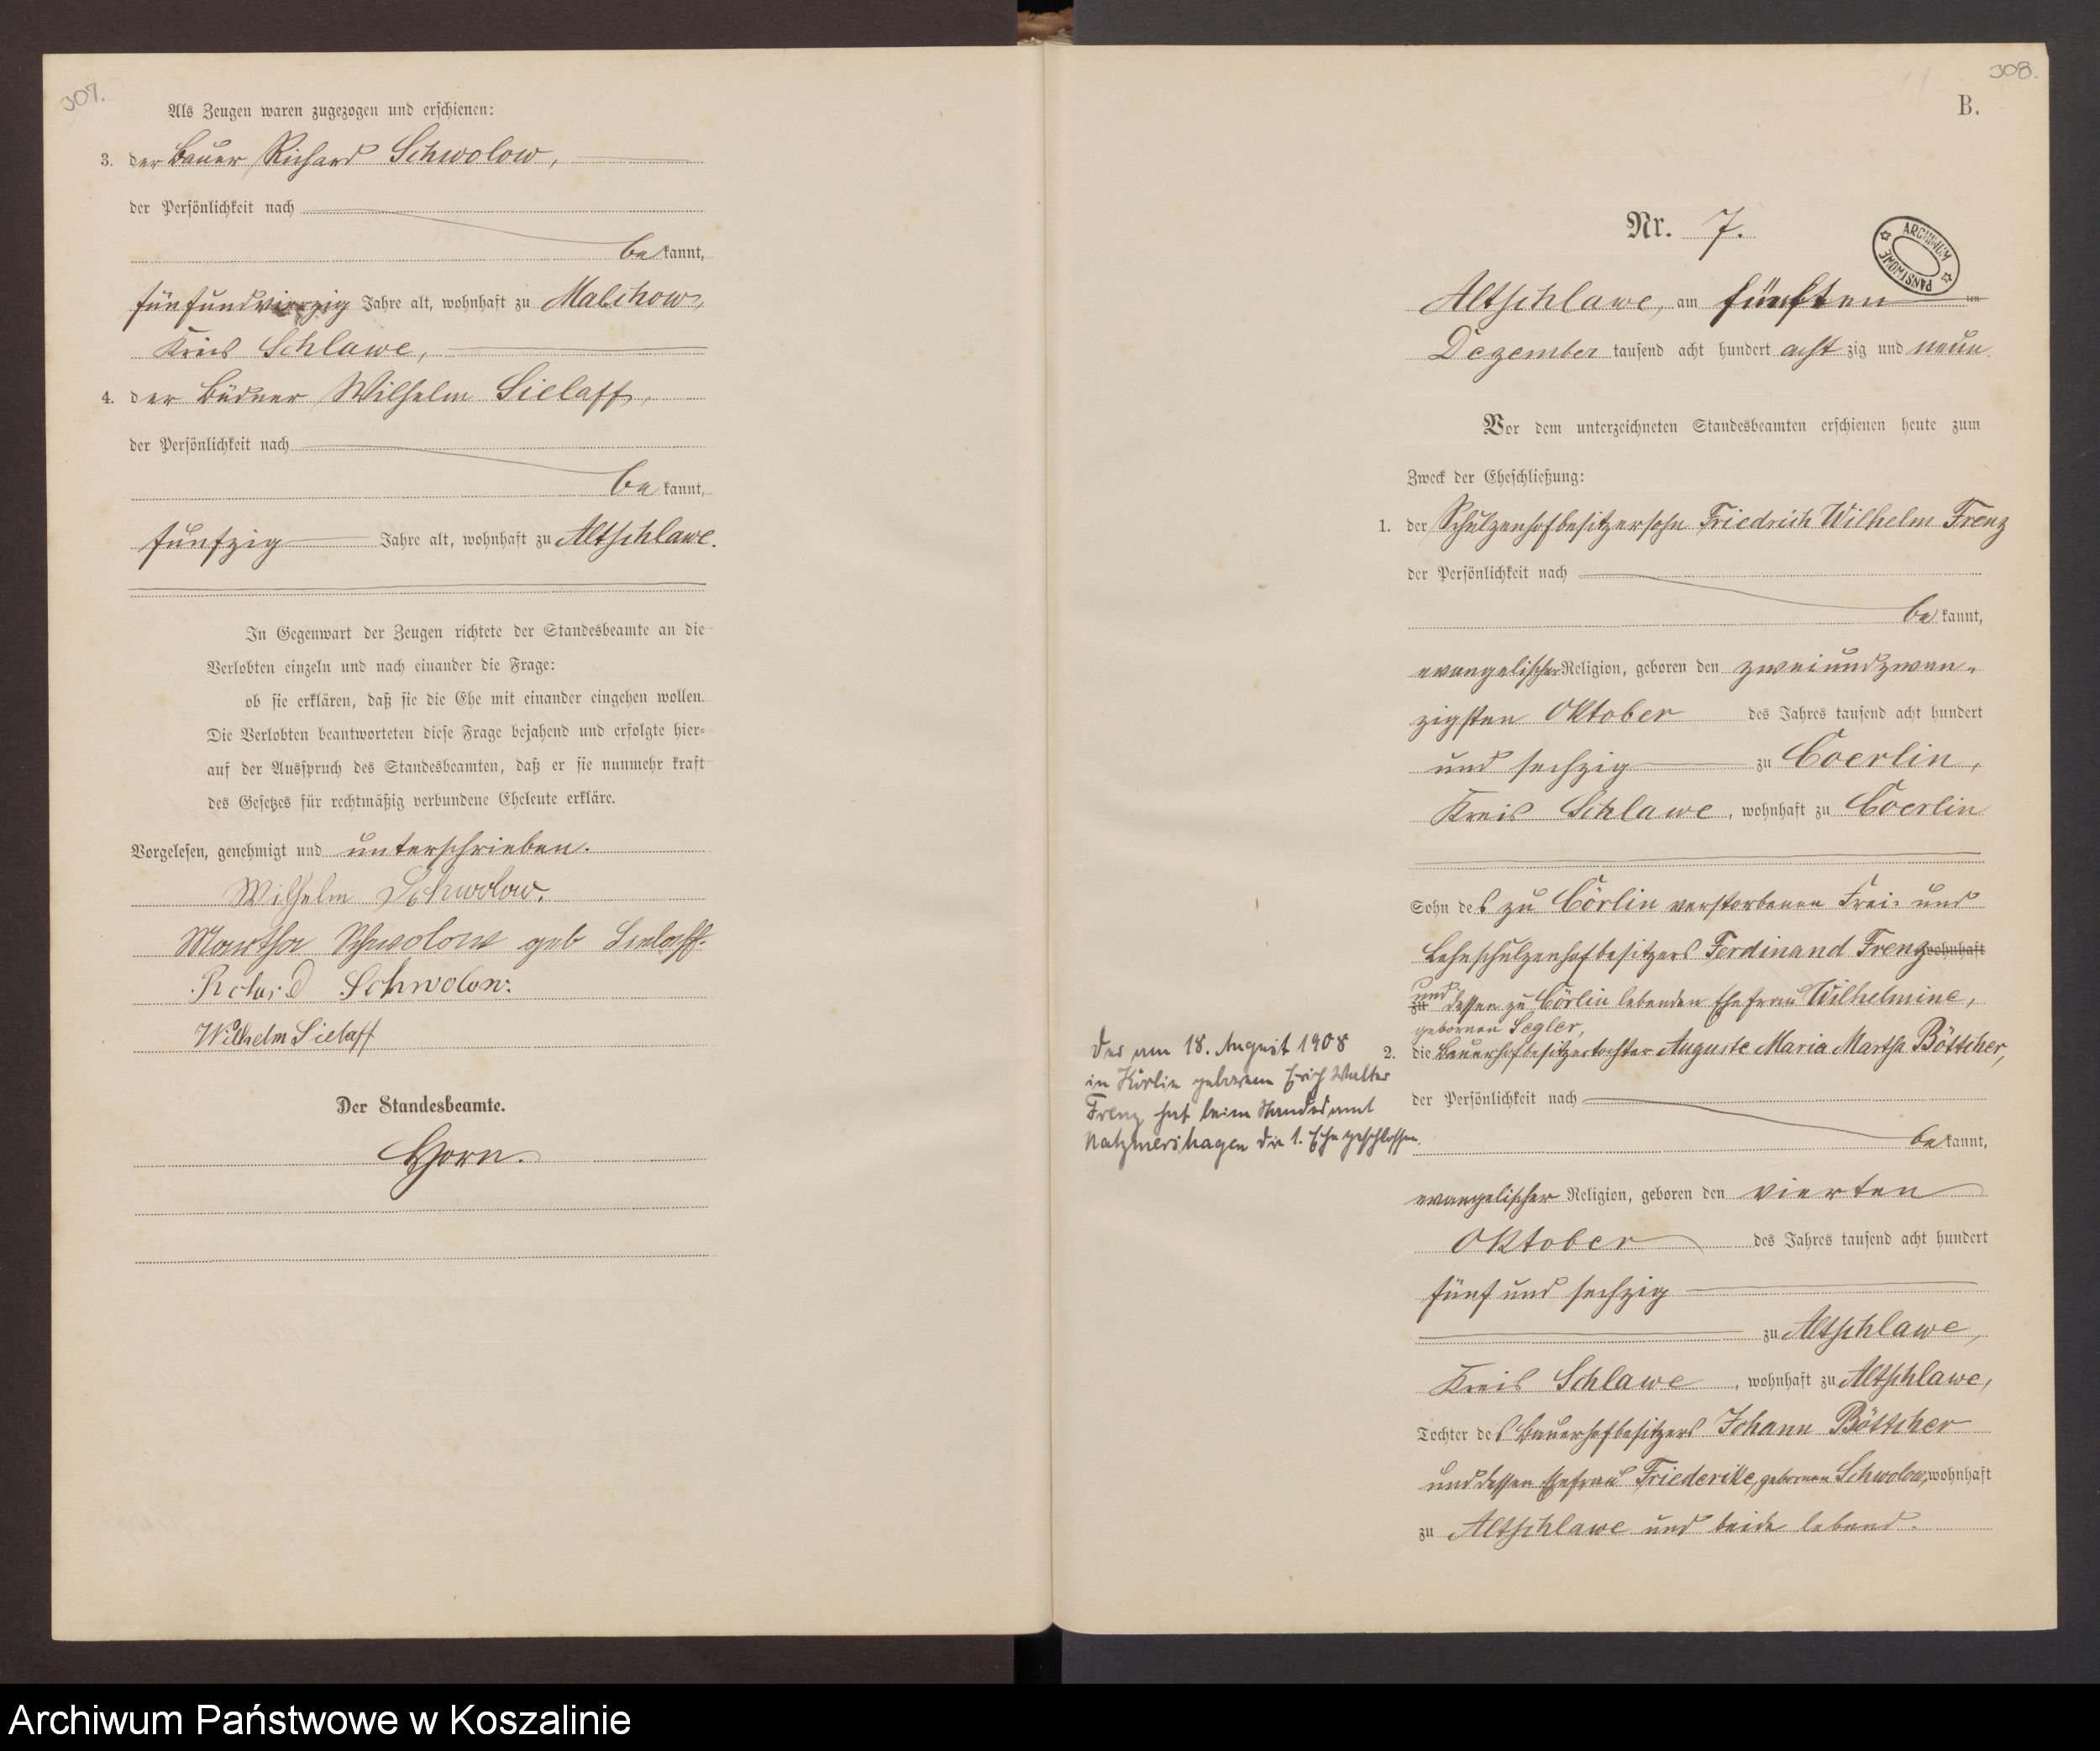 307.
Als Zeugen waren zugezogen und erschienen:
3. der Bauer Richard Schwolow,
der Persönlichkeit nach
be kannt,
fünfundvierzig Jahre alt, wohnhaft zu Malchow,
Kreis Schlawe,
4. der Büdner Wilhelm Sielaff,
der Persönlichkeit nach
be kannt,
fünfzig Jahre alt, wohnhaft zu Altschlawe.
In Gegenwart der Zeugen richtete der Standesbeamte an die
Verlobten einzeln und nach einander die Frage:
ob sie erklären, daß sie die Ehe mit einander eingehen wollen.
Die Verlobten beantworteten diese Frage bejahend und erfolgte hier-
auf der Ausspruch des Standesbeamten, daß er sie nunmehr kraft
des Gesetzes für rechtmäßig verbundene Eheleute erkläre.
Vorgelesen, genehmigt und unterschrieben.
Wilhelm Schwolow.
Martha Schwolow geb Sielaff.
Richard Schwolow.
Wilhelm Sielaff
Der Standesbeamte.
Horn.
308.
B.
Nr. 7.
ARCHIWUM PAŃSTWOWE
Altschlawe, am fünften ten
Dezember tausend acht hundert acht zig und neun.
Vor dem unterzeichneten Standesbeamten erschienen heute zum
Zweck der Eheschließung:
1. der Schulzenhofbesitzersohn Friedrich Wilhelm Frenz
der Persönlichkeit nach
be kannt,
evangelischer Religion, geboren den zweiundzwan-
zigsten Oktober des Jahres tausend acht hundert
und sechzig zu Coerlin,
Kreis Schlawe, wohnhaft zu Coerlin
Sohn des zu Cörlin verstorbenen Frei- und
Lehnschulzenhofbesitzers Ferdinand Frenz wohnhaft
und
zu dessen zu Cörlin lebenden Ehefrau Wilhelmine,
gebornen Segler,
2. die Bauerhofbesitzertochter Auguste Maria Martha Böttcher,
der Persönlichkeit nach
be kannt,
evangelischer Religion, geboren den vierten
Oktober des Jahres tausend acht hundert
fünf und sechzig
zu Altschlawe,
Kreis Schlawe, wohnhaft zu Altschlawe,
Tochter des Bauerhofbesitzers Johann Böttcher
und dessen Ehefrau Friederike, gebornen Schwolow, wohnhaft
zu Altschlawe und beide lebend.
Der am 18. August 1908
in Körlin geborene Erich Walter
Frenz hat beim Standesamt
Natzmershagen die 1. Ehe geschlossen.
Archiwum Państwowe w Koszalinie